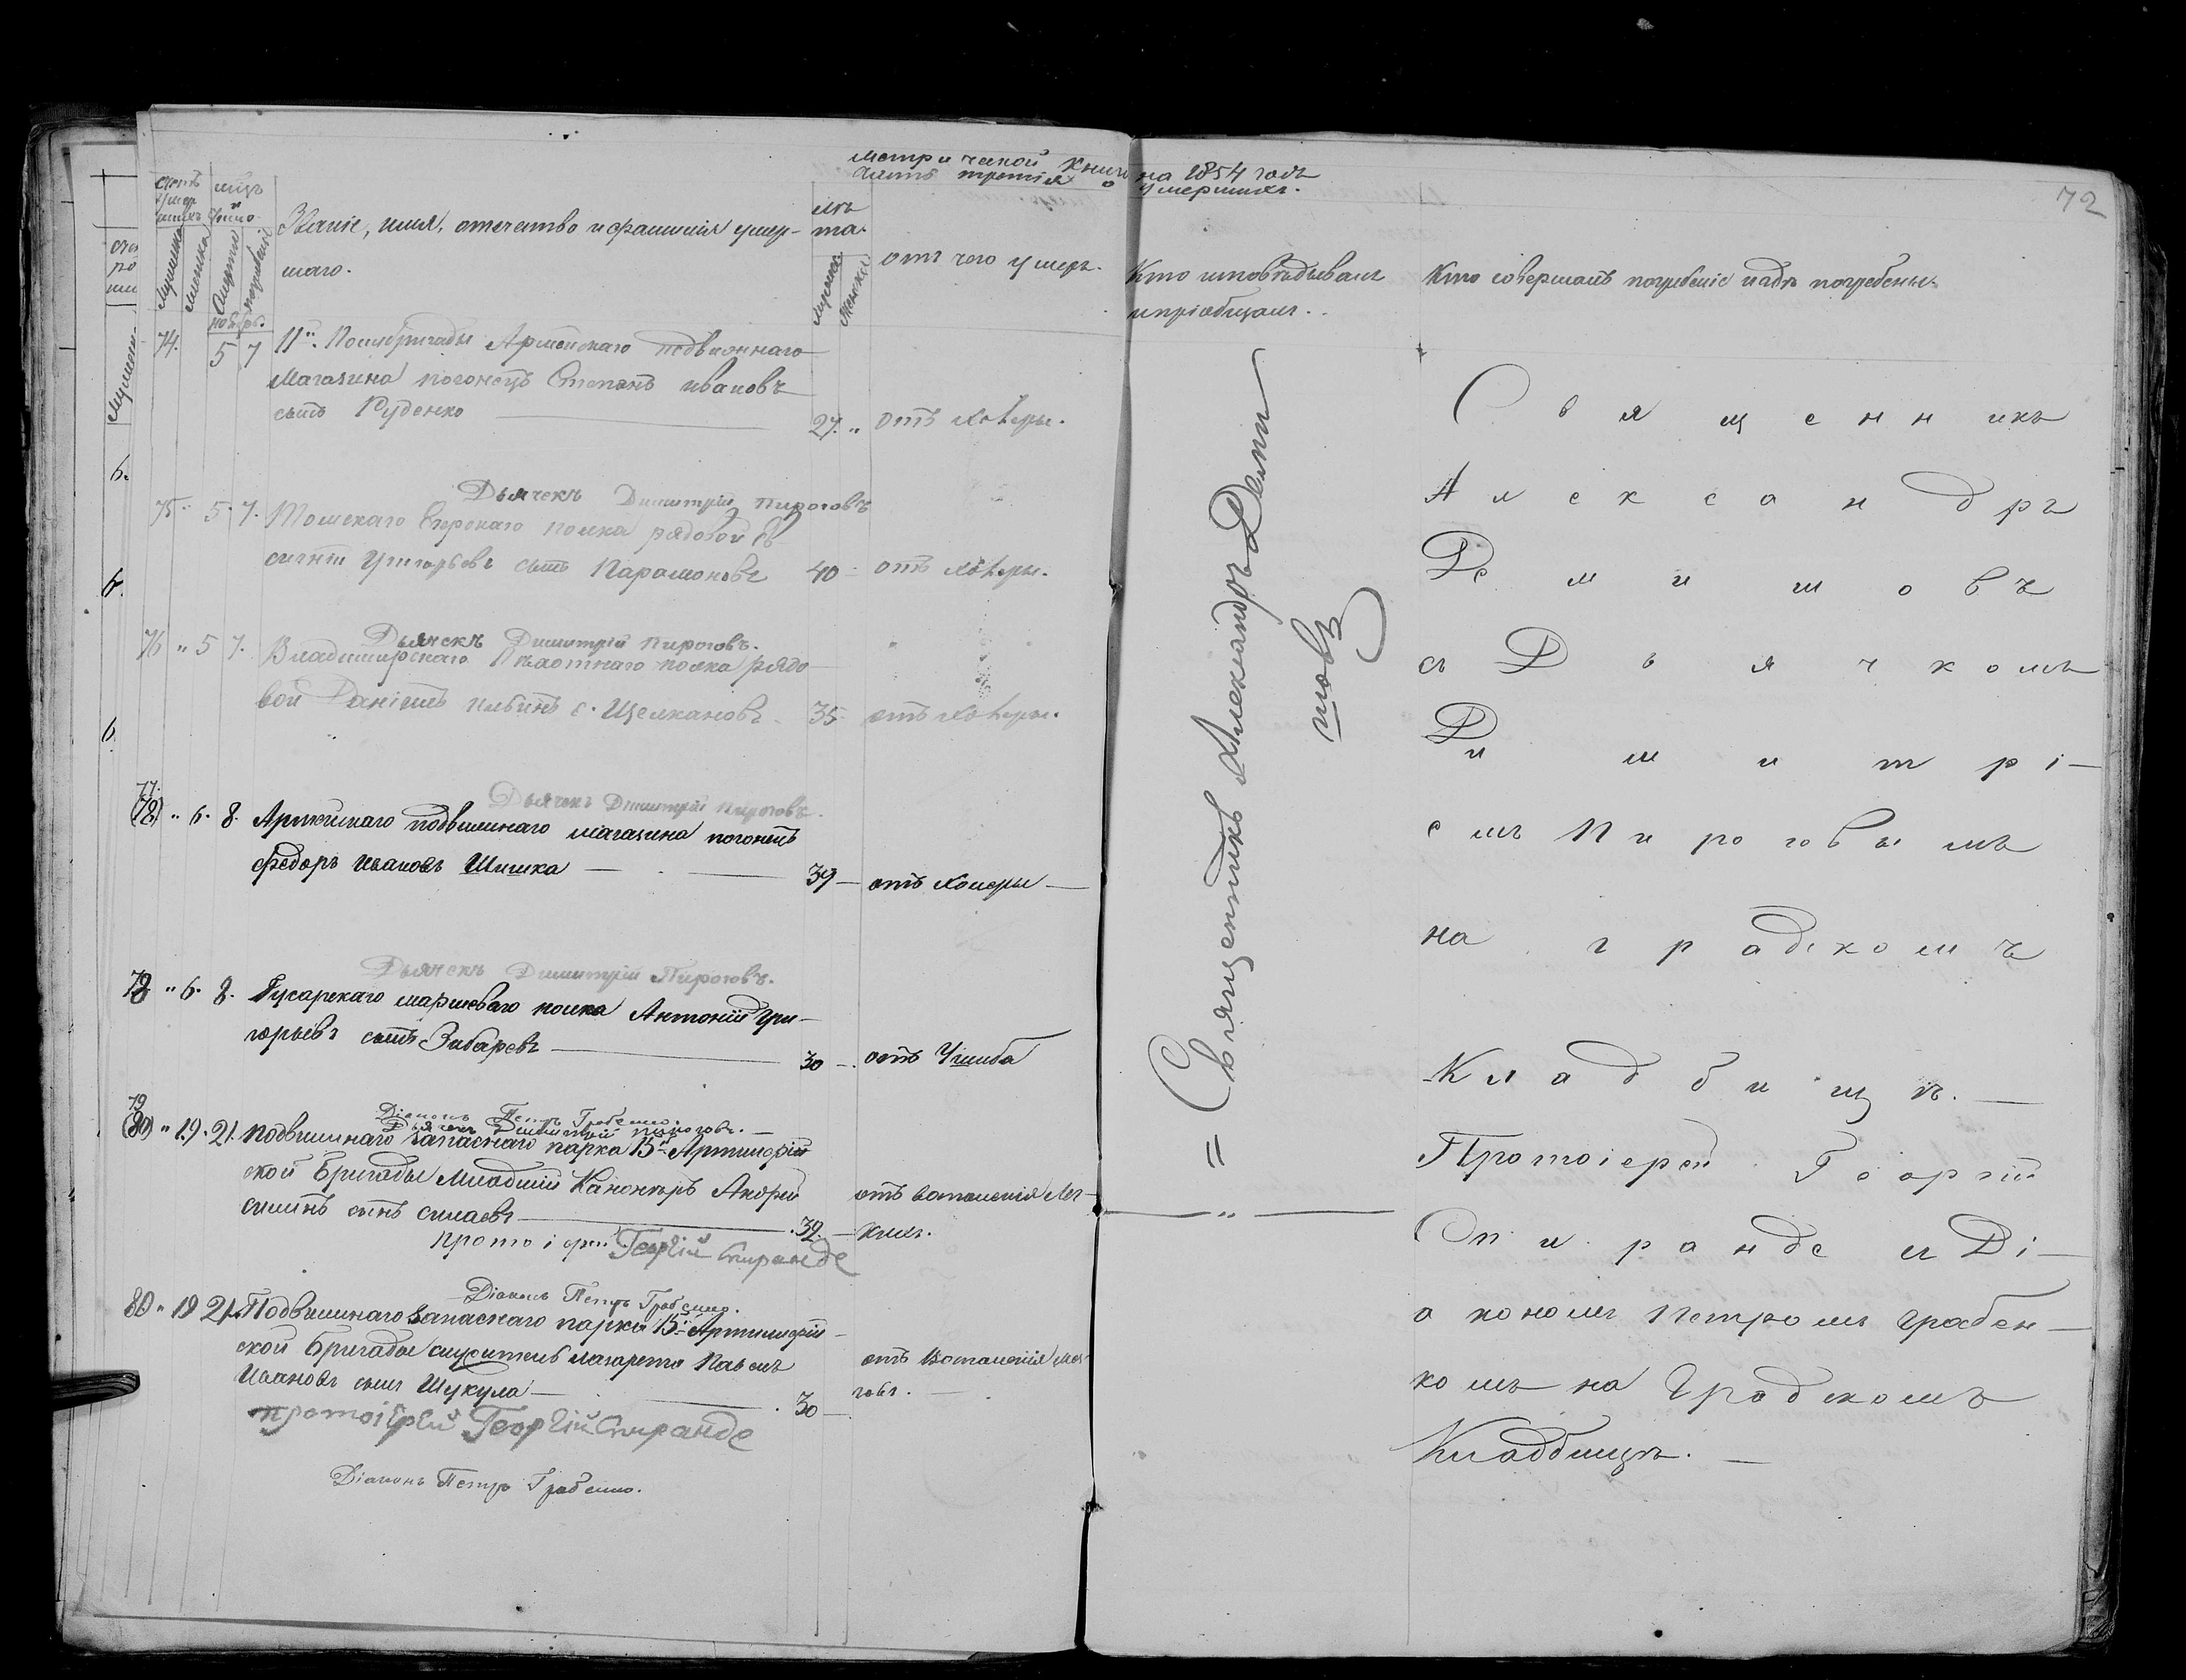 метрической книги на 1854 годъ
часть третія о умершихъ.
72
счетъ умершихъ
мужеска
женска
мѣсяцъ и число
смерти
погребенія
Званіе, имя, отечество и фамилія умер-
шаго.
лѣта.
мужеска
женска
отъ чего умеръ.
Кто исповѣдывалъ
и пріобщалъ.
Кто совершалъ погребеніе и гдѣ погребены
ноябрь.
74. 5 7 11й Полубригады Армейскаго подвижнаго
Магазина погонецъ Степанъ Ивановъ
сынъ Руденко 27. " отъ холеры.
Дьячекъ Димитрій Пироговъ
75. 5. 7. Томскаго Егерскаго полка рядовой
Григорьевъ сынъ Парамоновъ 40 отъ холеры.
Дьячекъ Димитрій Пироговъ.
76 " 5 7. Владимирскаго Пѣхотнаго полка рядо-
вой Даніилъ Ильинъ с. Щелкановъ 35 отъ холеры.
Дьячекъ Димитрій Пироговъ.
77.
(78) " 6. 8. Армейскаго подвижнаго магазина погонецъ
Федоръ Ивановъ Шишка — 39 — отъ холеры —
Дьячекъ Димитрій Пироговъ.
78 " 6. 8. Гусарскаго маршеваго полка Антоній Гри-
горьевъ сынъ Зибаревъ — 30 — отъ Ушиба
Діаконъ Петръ Грабенко.
Дьячекъ Димитрій Пироговъ. —
79
(80) " 19. 21. Подвижнаго запаснаго парка 15й Артиллерій-
ской бригады Младшій Канониръ Андрей
Силинъ сынъ Силаевъ — 32. — отъ воспаленія Лег-
кихъ.
протоіерей Георгій Спиранде
Діаконъ Петръ Грабенко.
80 " 19 21. Подвижнаго запаснаго парка 15й Артиллерій-
ской бригады служитель лазарета Павелъ
Ивановъ сынъ Шукула — 30 — отъ Воспаленія
протоіерей Георгій Спиранде
Діаконъ Петръ Грабенко.
= Священникъ Александръ Деми
шовъ
Священникъ
Александръ
Демишовъ
съ Дьячкомъ
Димитрі-
емъ Пироговымъ
на градскомъ
Кладбищѣ. —
Протоіерей Георгій
Спиранде съ Ді-
акономъ Петромъ Грабен-
комъ на Градскомъ
Кладбищѣ. —